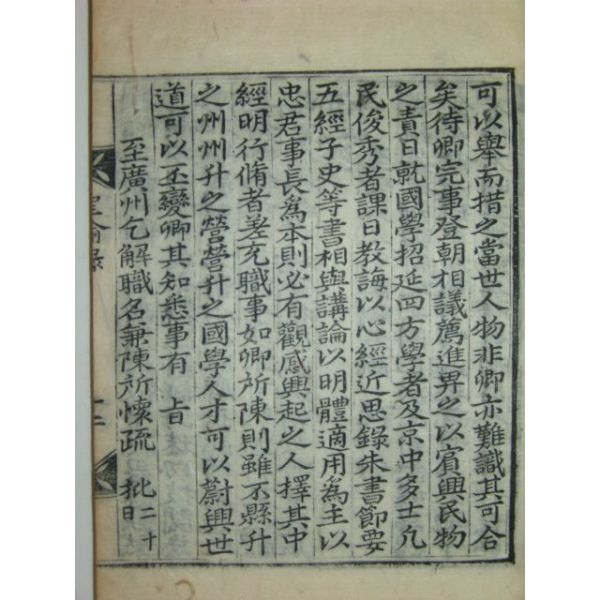 可以舉而措之當世人物非卿亦難識其可合
矣待卿完事登朝相議薦進畀之以賓興民物
之責日就國學招延四方學者及京中多士凡
民俊秀者課日教誨以心經近思錄朱書節要
五經子史等書相與講論以明體適用爲主以
忠君事長爲本則必有觀感興起之人擇其中
經明行脩者差充職事如卿所陳則雖不縣升
之州州升之營營升之國學人才可以蔚興世
道可以丕變卿其知悉事有 旨
至廣州乞解職名兼陳所懷疏 批二十
日